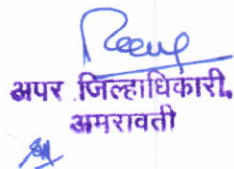 अपर जिल्हाधिकारी,
अमरावती